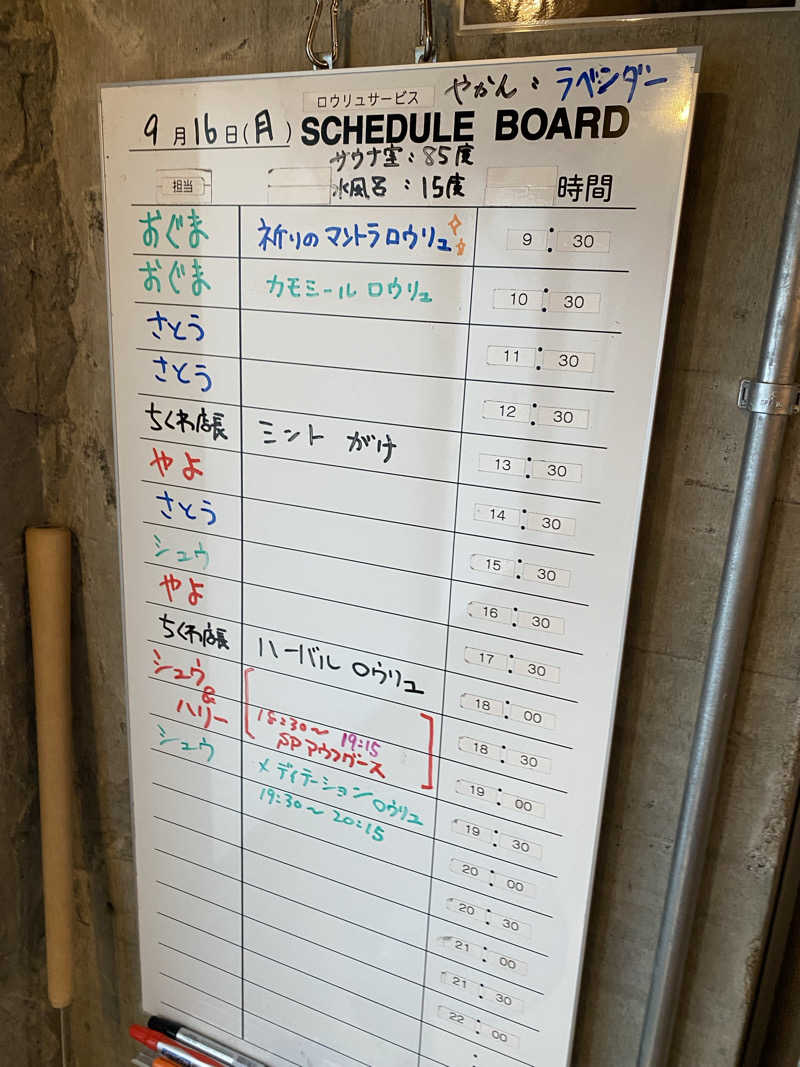 ロウリュサービス やかん：ラベンダー
9月16日(月) SCHEDULE BOARD
サウナ室：85度
担当 水風呂：15度 時間
おぐま 祈りのマントラロウリュ 9:30
おぐま カモミール ロウリュ 10:30
さとう 11:30
さとう 12:30
ちくわ店長 ミント がけ 13:30
やよ 14:30
さとう 15:30
シュウ 16:30
やよ 17:30
ちくわ店長 ハーバル ロウリュ 18:00
シュウ 18:30
&
ハリー 18:30〜19:15 19:00
SPアウフグース
シュウ メディテーションロウリュ 19:30
19:30〜20:15 20:00
20:30
21:00
21:30
22:00